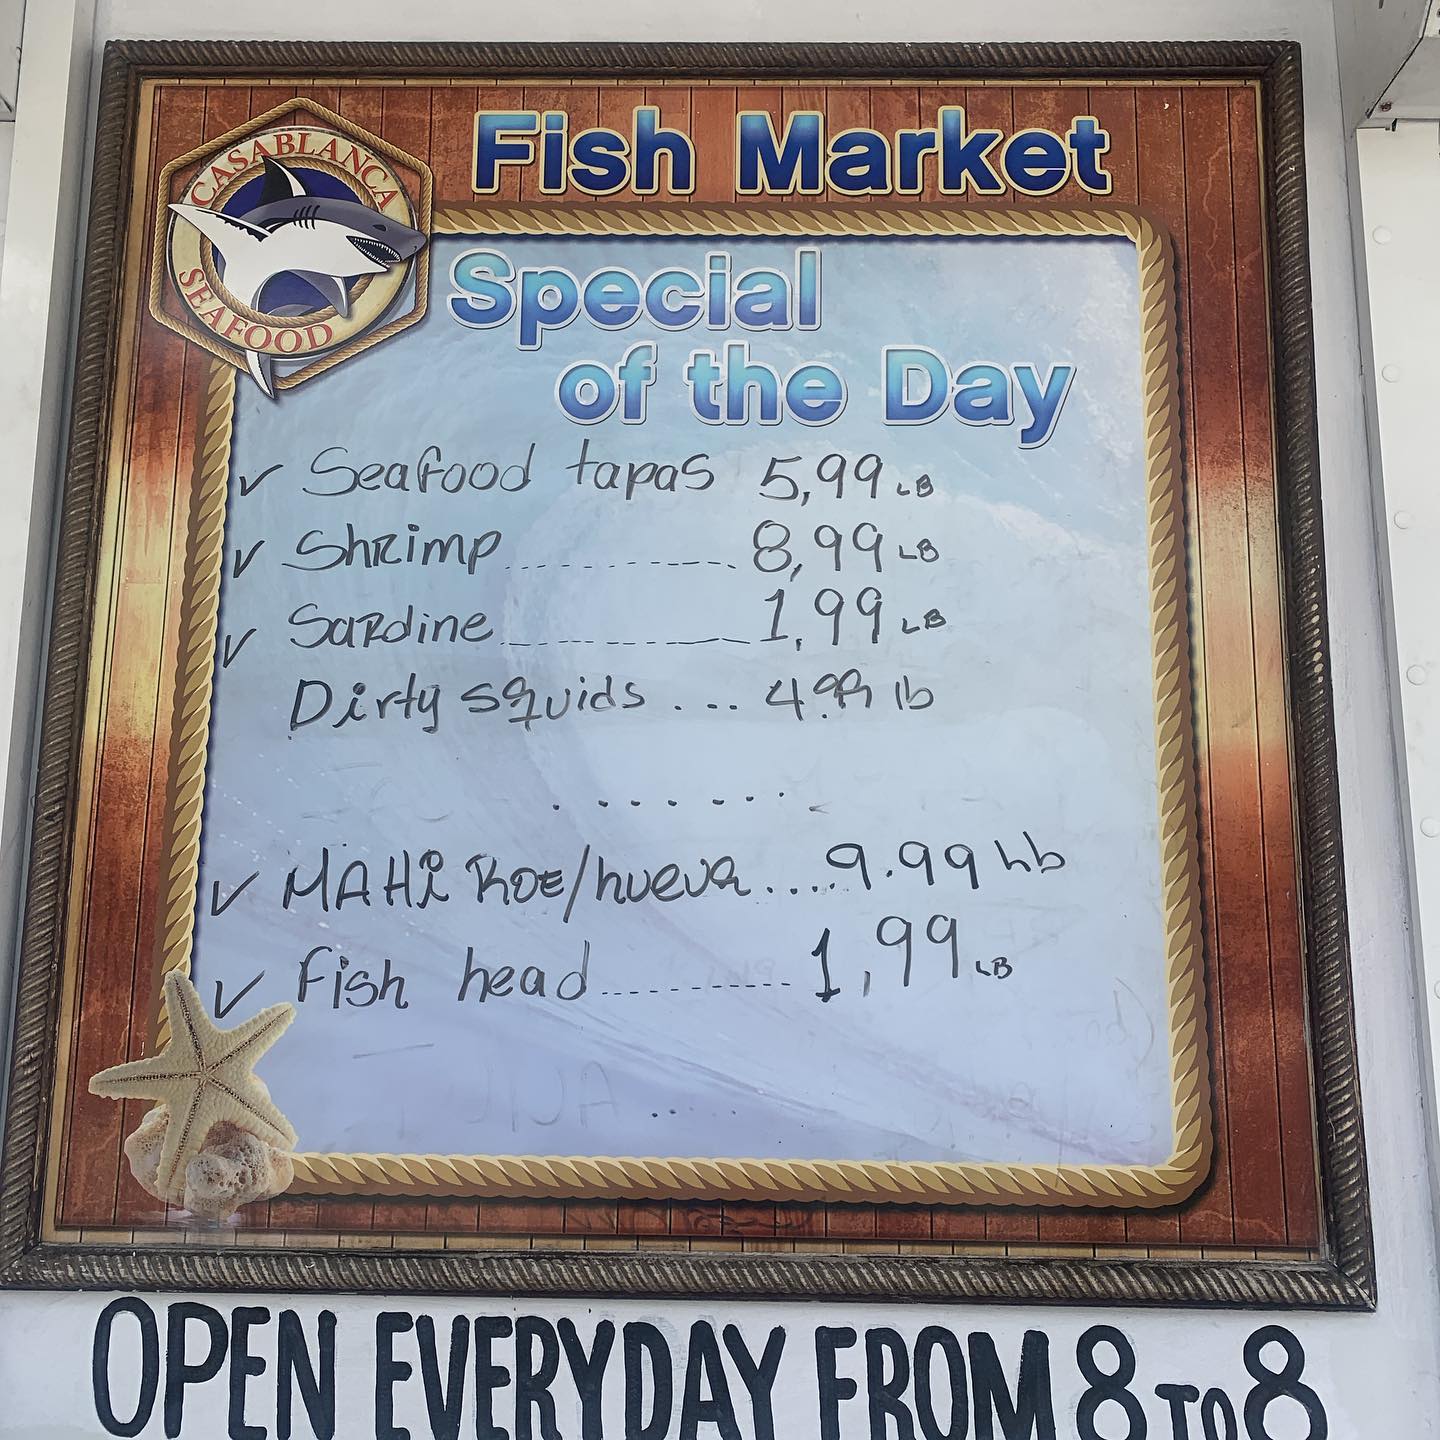 CASABLANCA
SEAFOOD
Fish Market
Special
of the Day
✓ Seafood tapas 5,99 LB
✓ Shrimp 8,99 LB
✓ Sardine 1,99 LB
Dirty squids ... 4.99 lb
.......
✓ MAHi ROE/hueva .... 9.99 Lb
✓ Fish head 1,99 LB
OPEN EVERYDAY FROM 8 TO 8